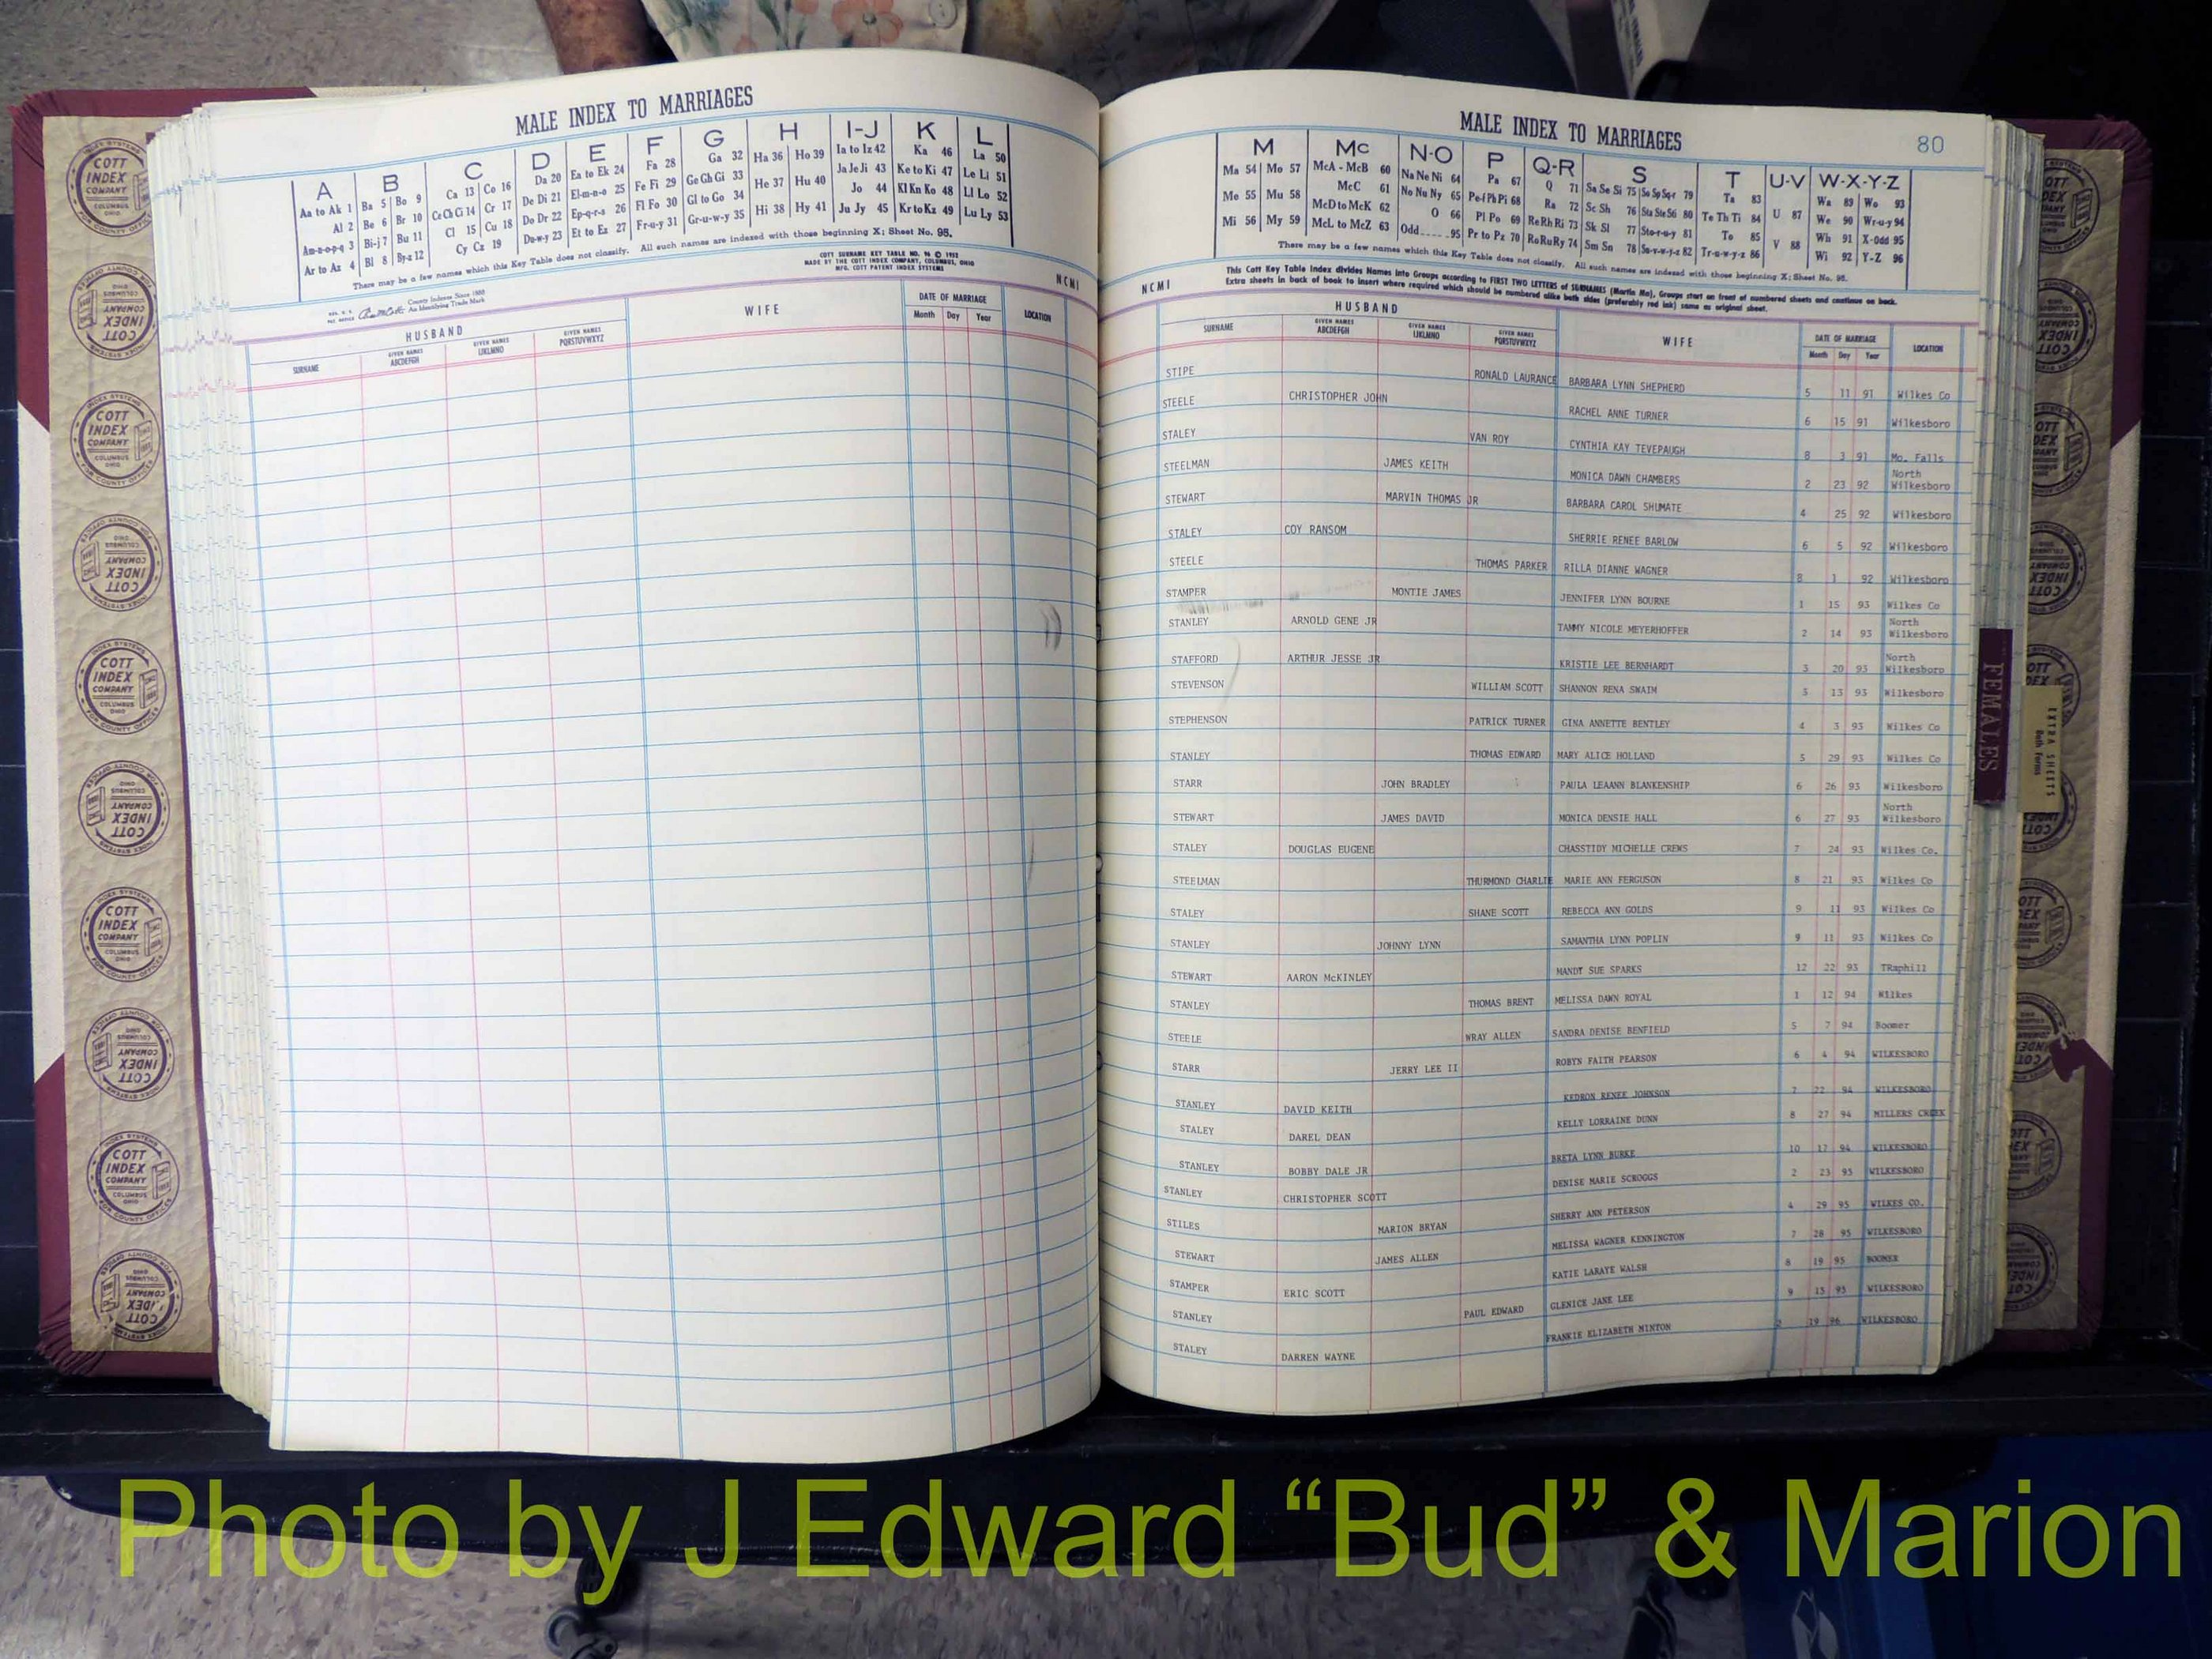 MALE INDEX TO MARRIAGES
A B C D E F G H I-J K L
Aa to Ak 1 Ba 5 Bo 9 Ca 13 Co 16 Da 20 Ea to Ek 24 Fa 28 Ga 32 Ha 36 Ho 39 Ia to Iz 42 Ka 46 La 50
Al 2 Be 6 Br 10 Ce Ch Ci 14 Cr 17 De Di 21 El-m-n-o 25 Fe Fi 29 Ge Gh Gi 33 He 37 Hu 40 Ja Je Ji 43 Ke to Ki 47 Le Li 51
Am-n-o-p-q 3 Bi-j 7 Bu 11 Cl 15 Cu 18 Do Dr 22 Ep-q-r-s 26 Fl Fo 30 Gl to Go 34 Hi 38 Hy 41 Jo 44 Kl Kn Ko 48 Ll Lo 52
Ar to Az 4 Bl 8 By-z 12 Cy Cz 19 Du-w-y 23 Et to Ez 27 Fr-u-y 31 Gr-u-w-y 35 Ju Jy 45 Kr to Kz 49 Lu Ly 53
There may be a few names which this Key Table does not classify. All such names are indexed with those beginning X; Sheet No. 95.
COTT SURNAME KEY TABLE NO. 96 © 1952
MADE BY THE COTT INDEX COMPANY, COLUMBUS, OHIO
MFG. COTT PATENT INDEX SYSTEMS
County Indexes Since 1888
An Identifying Trade Mark
NCMI
HUSBAND WIFE DATE OF MARRIAGE LOCATION
SURNAME GIVEN NAMES ABCDEFGH GIVEN NAMES IJKLMNO GIVEN NAMES PQRSTUVWXYZ Month Day Year
MALE INDEX TO MARRIAGES 80
M Mc N-O P Q-R S T U-V W-X-Y-Z
Ma 54 Mo 57 McA - McB 60 Na Ne Ni 64 Pa 67 Q 71 Sa Se Si 75 So Sp Sq-r 79 Ta 83 Wa 89 Wo 93
Me 55 Mu 58 McC 61 No Nu Ny 65 Pe-f Ph Pi 68 Ra 72 Sc Sh 76 Sta Ste Sti 80 Te Th Ti 84 U 87 We 90 Wr-u-y 94
Mi 56 My 59 McD to McK 62 O 66 Pl Po 69 Re Rh Ri 73 Sk Sl 77 Sto-r-u-y 81 To 85 V 88 Wh 91 X-Odd 95
McL to McZ 63 Odd.....95 Pr to Pz 70 Ro Ru Ry 74 Sm Sn 78 Su-v-w-y-z 82 Tr-u-w-y-z 86 Wi 92 Y-Z 96
There may be a few names which this Key Table does not classify. All such names are indexed with those beginning X; Sheet No. 95.
This Cott Key Table Index divides Names into Groups according to FIRST TWO LETTERS of SURNAMES (Martin Ma), Groups start on front of numbered sheets and continue on back.
Extra sheets in back of book to insert where required which should be numbered alike both sides (preferably red ink) same as original sheet.
NCMI
HUSBAND WIFE DATE OF MARRIAGE LOCATION
SURNAME GIVEN NAMES ABCDEFGH GIVEN NAMES IJKLMNO GIVEN NAMES PQRSTUVWXYZ Month Day Year
STIPE RONALD LAURANCE BARBARA LYNN SHEPHERD 5 11 91 Wilkes Co
STEELE CHRISTOPHER JOHN RACHEL ANNE TURNER 6 15 91 Wilkesboro
STALEY VAN ROY CYNTHIA KAY TEVEPAUGH 8 3 91 Mo. Falls
STEELMAN JAMES KEITH MONICA DAWN CHAMBERS 2 23 92 North Wilkesboro
STEWART MARVIN THOMAS JR BARBARA CAROL SHUMATE 4 25 92 Wilkesboro
STALEY COY RANSOM SHERRIE RENEE BARLOW 6 5 92 Wilkesboro
STEELE THOMAS PARKER RILLA DIANNE WAGNER 8 1 92 Wilkesboro
STAMPER MONTIE JAMES JENNIFER LYNN BOURNE 1 15 93 Wilkes Co
STANLEY ARNOLD GENE JR TAMMY NICOLE MEYERHOFFER 2 14 93 North Wilkesboro
STAFFORD ARTHUR JESSE JR KRISTIE LEE BERNHARDT 3 20 93 North Wilkesboro
STEVENSON WILLIAM SCOTT SHANNON RENA SWAIM 3 13 93 Wilkesboro
STEPHENSON PATRICK TURNER GINA ANNETTE BENTLEY 4 3 93 Wilkes Co
STANLEY THOMAS EDWARD MARY ALICE HOLLAND 5 29 93 Wilkes Co
STARR JOHN BRADLEY PAULA LEANN BLANKENSHIP 6 26 93 Wilkesboro
STEWART JAMES DAVID MONICA DENSIE HALL 6 27 93 North Wilkesboro
STALEY DOUGLAS EUGENE CHASSTIDY MICHELLE CREWS 7 24 93 Wilkes Co.
STEELMAN THURMOND CHARLIE MARIE ANN FERGUSON 8 21 93 Wilkes Co
STALEY SHANE SCOTT REBECCA ANN GOLDS 9 11 93 Wilkes Co
STANLEY JOHNNY LYNN SAMANTHA LYNN POPLIN 9 11 93 Wilkes Co
STEWART AARON McKINLEY MANDY SUE SPARKS 12 22 93 TRaphill
STANLEY THOMAS BRENT MELISSA DAWN ROYAL 1 12 94 Wilkes
STEELE WRAY ALLEN SANDRA DENISE BENFIELD 5 7 94 Boomer
STARR JERRY LEE II ROBYN FAITH PEARSON 6 4 94 WILKESBORO
STANLEY DAVID KEITH KEDRON RENEE JOHNSON 7 22 94 WILKESBORO
STALEY DAREL DEAN KELLY LORRAINE DUNN 8 27 94 MILLERS CREEK
STANLEY BOBBY DALE JR BRETA LYNN BURKE 10 17 94 WILKESBORO
STANLEY CHRISTOPHER SCOTT DENISE MARIE SCROGGS 2 23 95 WILKESBORO
STILES MARION BRYAN SHERRY ANN PETERSON 4 29 95 WILKES CO.
STEWART JAMES ALLEN MELISSA WAGNER KENNINGTON 7 28 95 WILKESBORO
STAMPER ERIC SCOTT KATIE LARAYE WALSH 8 19 95 BOOMER
STANLEY PAUL EDWARD GLENICE JANE LEE 9 15 95 WILKESBORO
STALEY DARREN WAYNE FRANKIE ELIZABETH MINTON 2 19 96 WILKESBORO
FEMALES
EXTRA SHEETS
Both Forms
COTT INDEX COMPANY
COLUMBUS OHIO
INDEX SYSTEMS
FOR COUNTY OFFICES
Photo by J Edward “Bud” & Marion